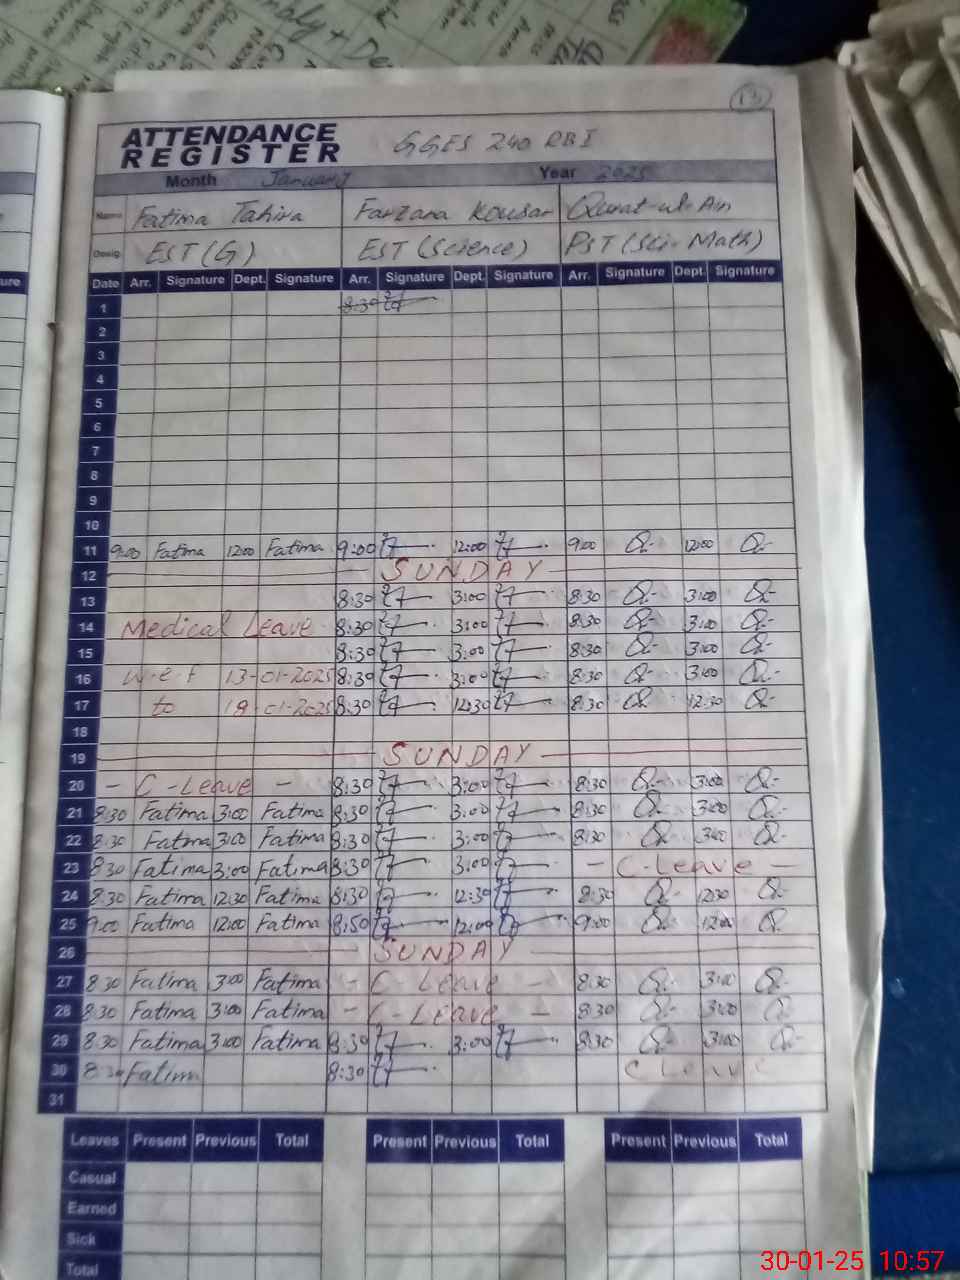 13
ATTENDANCE
REGISTER
GGES 240 RBI
Month January Year 2025
Name Fatima Tahira Farzana Kousar Qurat-ul-Ain
Desig. EST (G) EST (Science) PST (Sci-Math)
Date Arr. Signature Dept. Signature Arr. Signature Dept. Signature Arr. Signature Dept. Signature
1 8:30
2
3
4
5
6
7
8
9
10
11 9:00 Fatima 12:00 Fatima 9:00 12:00 9:00 12:00
12 SUNDAY
13 8:30 3:00 8:30 3:00
14 Medical Leave 8:30 3:00 8:30 3:00
15 8:30 3:00 8:30 3:00
16 w.e.f 13-01-2025 8:30 3:00 8:30 3:00
17 to 18-01-2025 8:30 12:30 8:30 12:30
18
19 SUNDAY
20 - C-Leave - 8:30 3:00 8:30 3:00
21 8:30 Fatima 3:00 Fatima 8:30 3:00 8:30 3:00
22 8:30 Fatima 3:00 Fatima 8:30 3:00 8:30 3:00
23 8:30 Fatima 3:00 Fatima 8:30 3:00 - C-Leave -
24 8:30 Fatima 12:30 Fatima 8:30 12:30 8:30 12:30
25 9:00 Fatima 12:00 Fatima 8:50 12:00 9:00 12:00
26 SUNDAY
27 8:30 Fatima 3:00 Fatima - C-Leave - 8:30 3:00
28 8:30 Fatima 3:00 Fatima - C-Leave - 8:30 3:00
29 8:30 Fatima 3:00 Fatima 8:30 3:00 8:30 3:00
30 8:30 Fatima 8:30 C Leave
31
Leaves Present Previous Total Present Previous Total Present Previous Total
Casual
Earned
Sick
Total
30-01-25 10:57